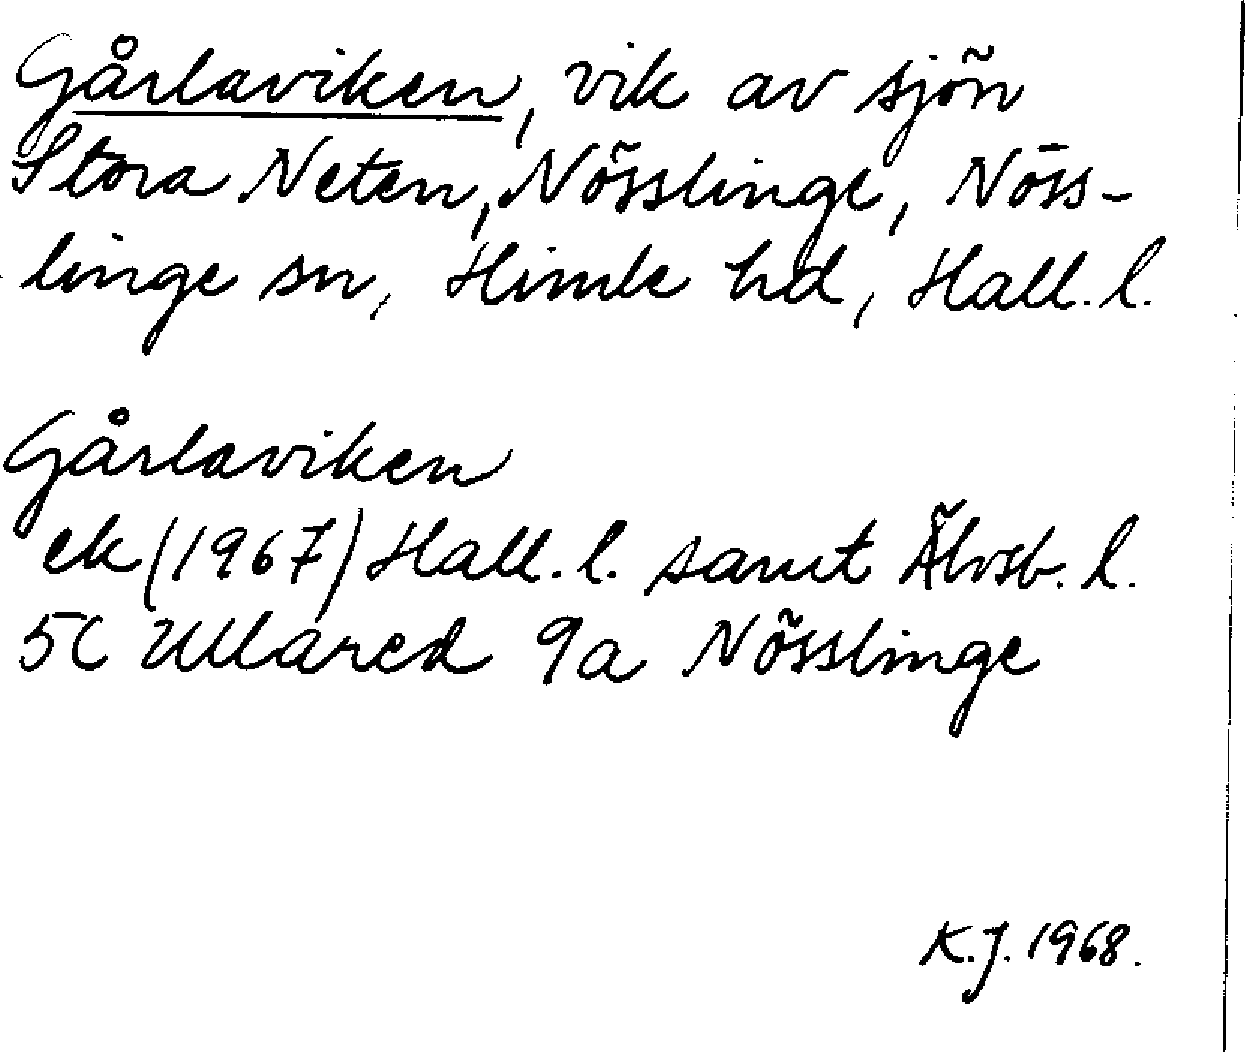 Gårlaviken, vik av sjön
Stora Neten, Nösslinge, Nöss-
linge sn, Himle hd, Hall. l.
Gårlaviken
ek (1967) Hall. l. samt Älvsb. l.
5C Ullared 9a Nösslinge
K.J. 1968.